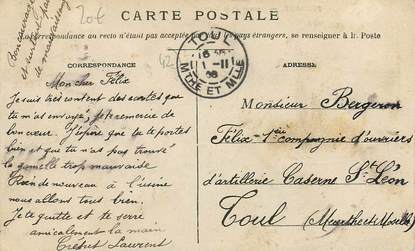 20€
CARTE POSTALE
La correspondance au recto n'étant pas acceptée par tous les pays étrangers, se renseigner à la Poste
CORRESPONDANCE
ADRESSE
42
TOUL
1 -11
08
MTHE ET MLLE
Bon courage
et surtout pas
de mauvais sang
Mon cher Félix
Je suis très content des cartes que
tu m'as envoyé je te remercie de
bon cœur. J'espère que tu te portes
bien et que tu n'as pas trouvé
la gamelle trop mauvaise
Rien de nouveau à l'usine
nous allons tous bien.
Je te quitte et te serre
amicalement la main
Laurent
Monsieur Bergeron
Félix - 1ère compagnie d'ouvriers
d'artillerie Caserne St Léon
Toul (Meurthe et Moselle)